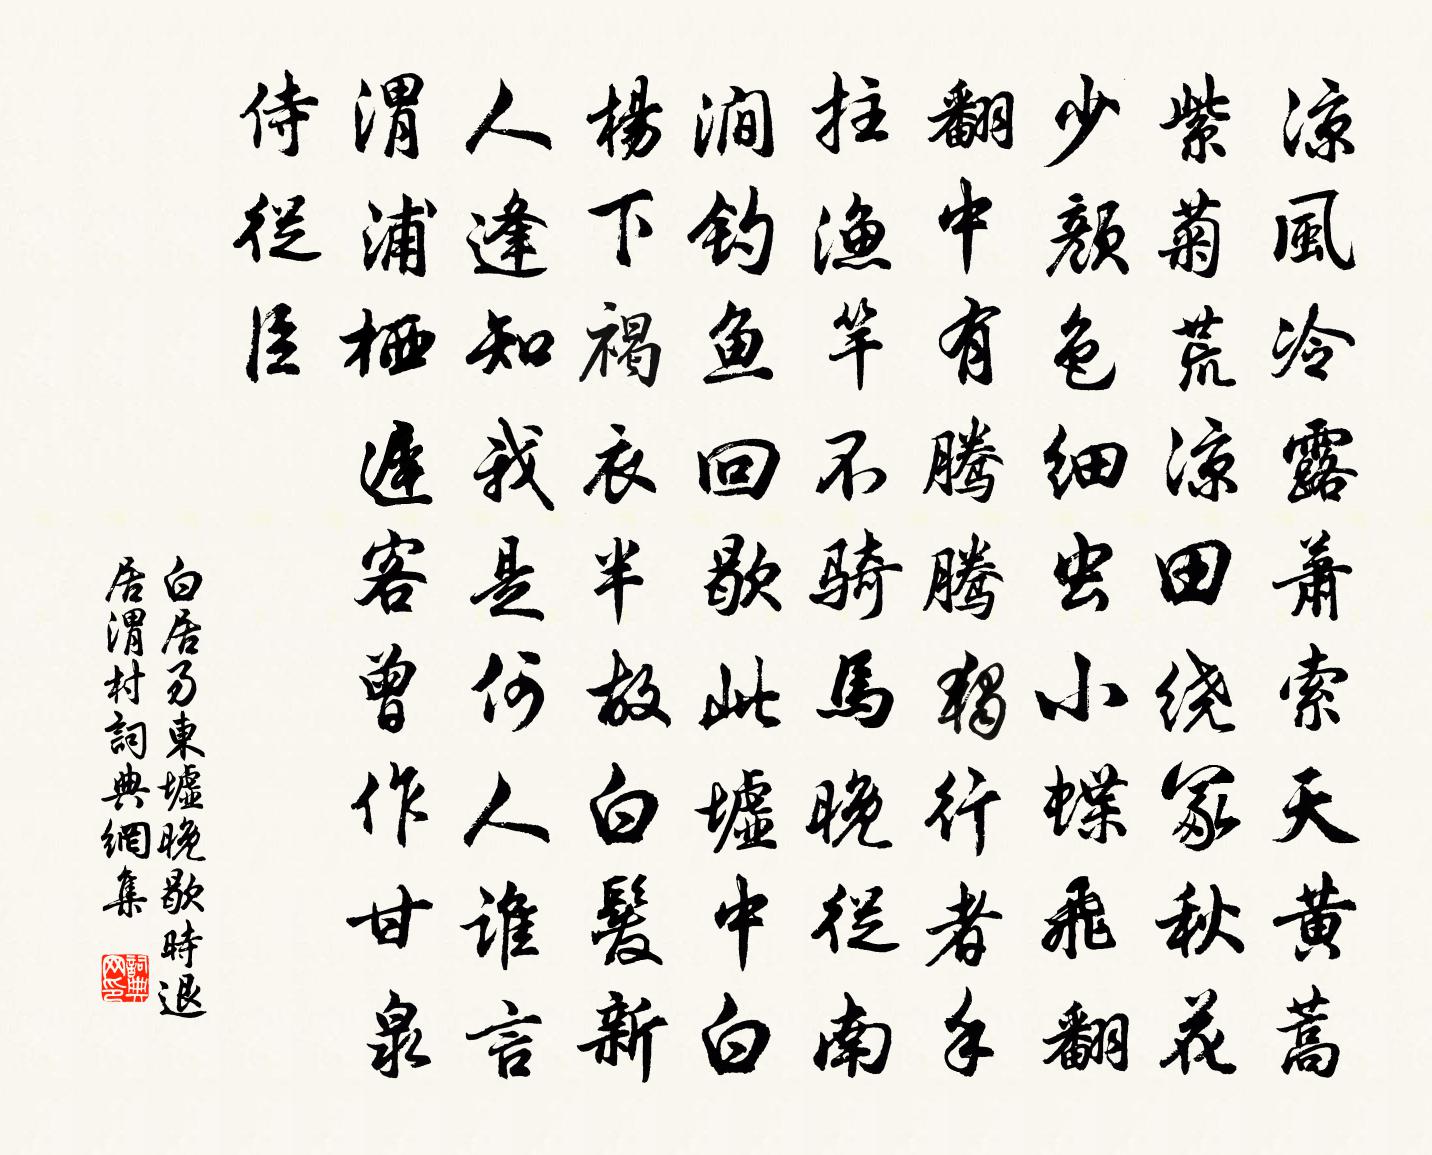 涼風冷露蕭索天黄蒿
紫菊荒涼田绕冢秋花
少颜色细虫小蝶飛翻
翻中有腾腾獨行者手
拄渔竿不骑馬晚從南
涧钓鱼回歇此墟中白
楊下褐衣半故白髮新
人逢知我是何人誰言
渭浦栖遲客曾作甘泉
侍從臣
白居易東墟晚歇時退
居渭村詞典網集
詞典
网印